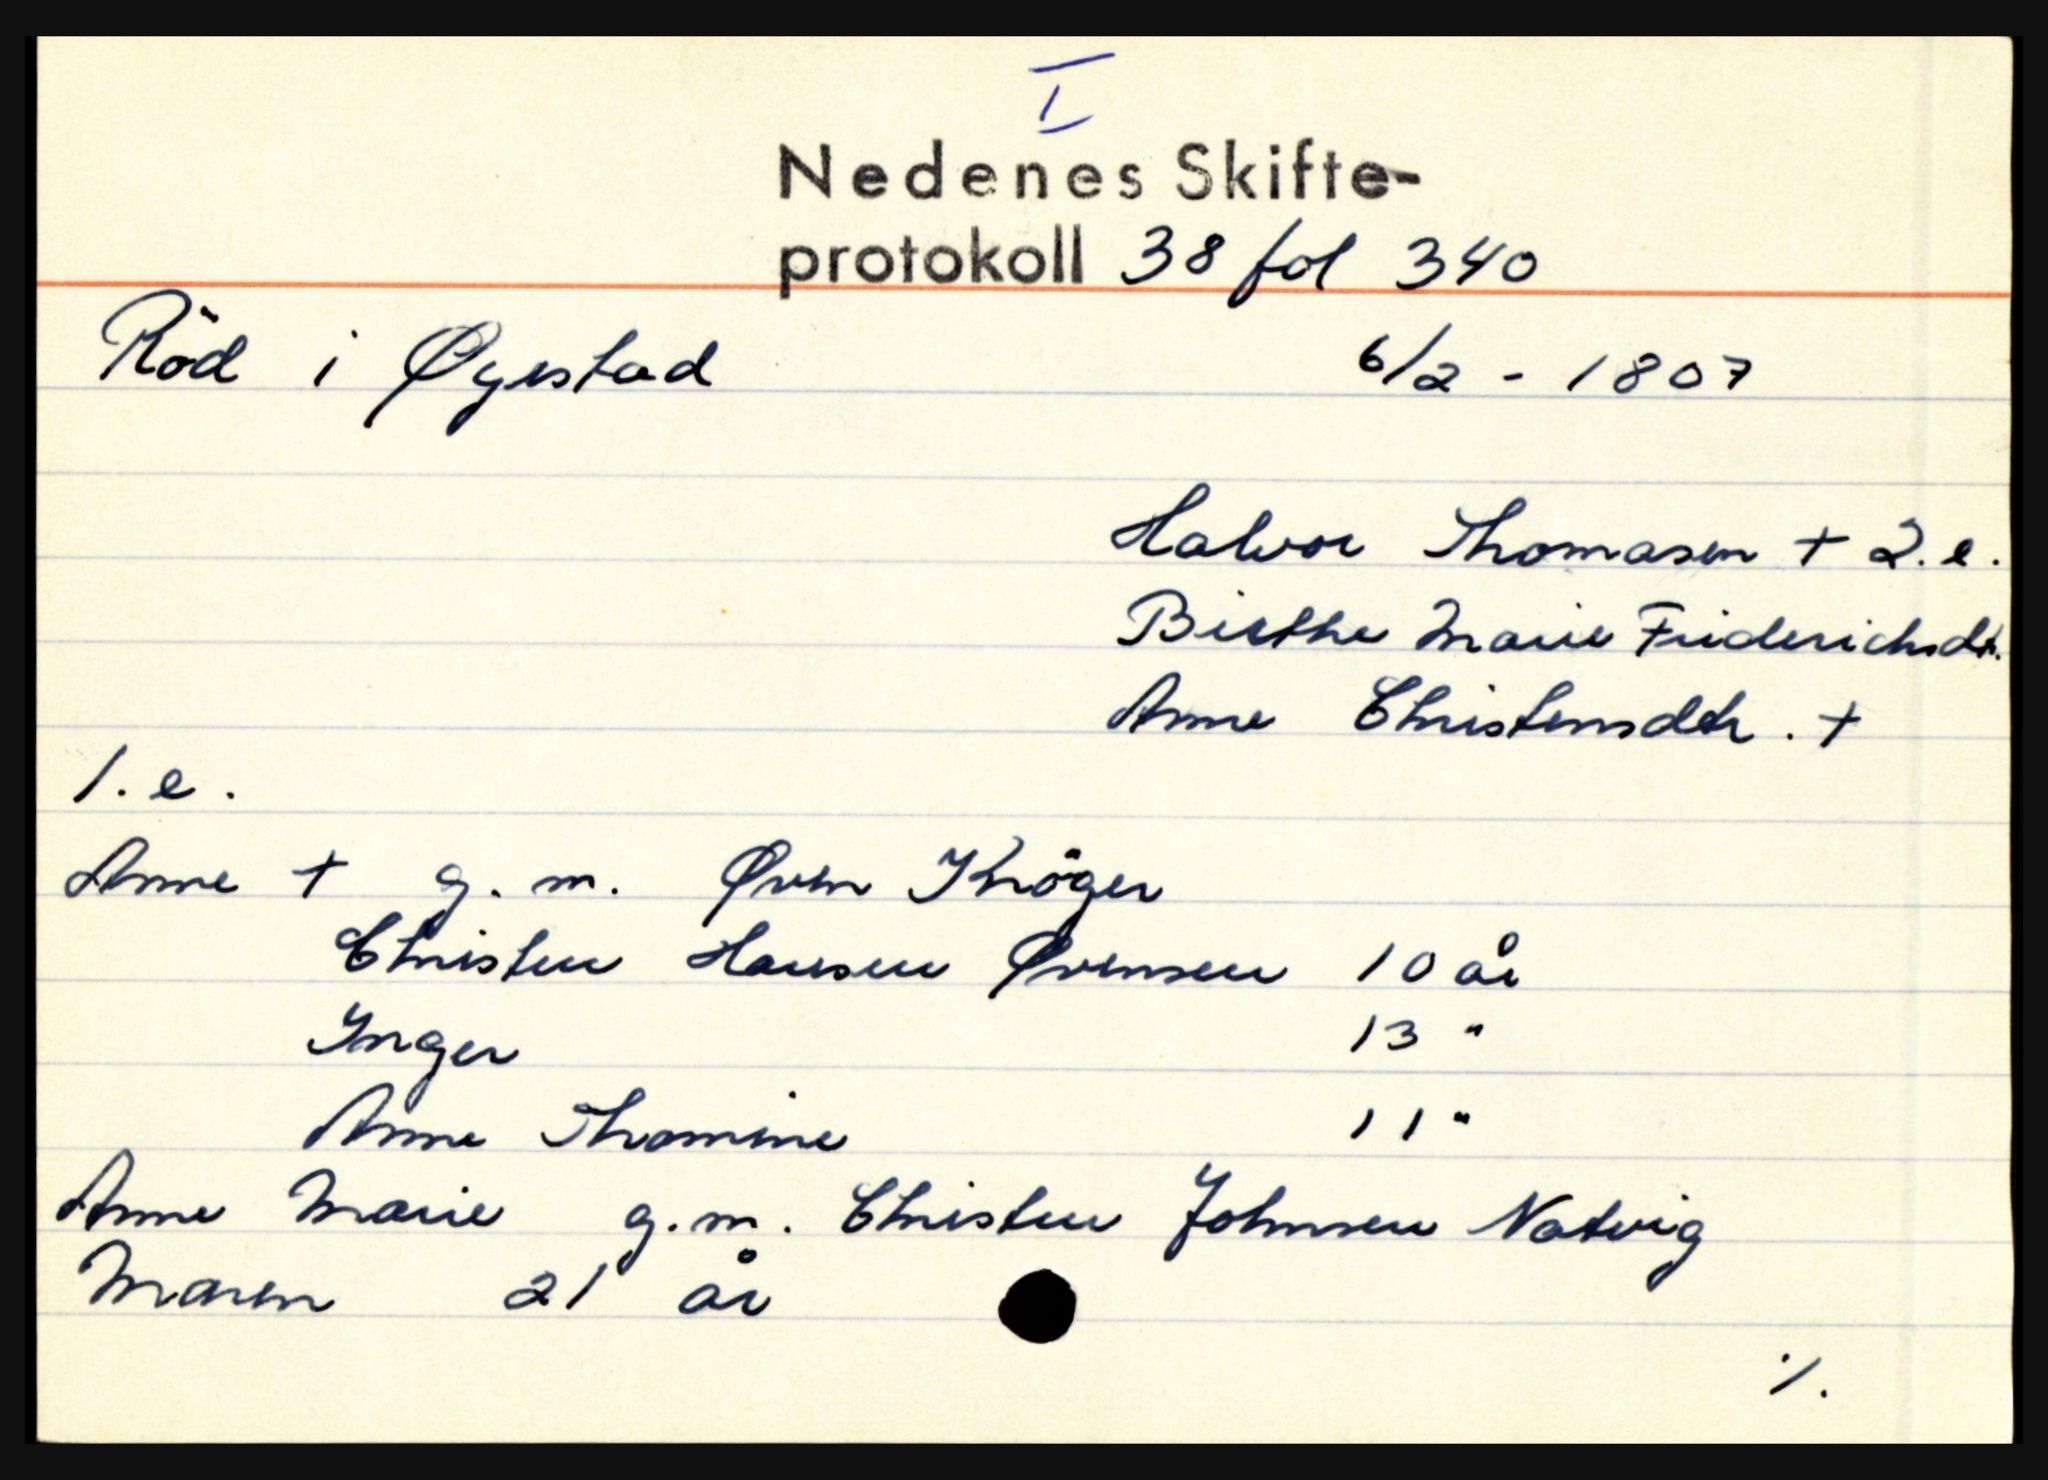 I
Nedenes Skifte-
protokoll 38 fol 340
Röd i Øyestad 6/2 - 1807
Halvor Thomasen + 2. e.
Birthe Marie Friderichsdt.
Anne Christensdtr. +
1. e.
Anne + g. m. Øven Kröger
Christen Hansen Øvensen 10 år
Inger 13 "
Anne Thomine 11 "
Anne Marie g. m. Christen Johnsen Natvig
Maren 21 år
·/.